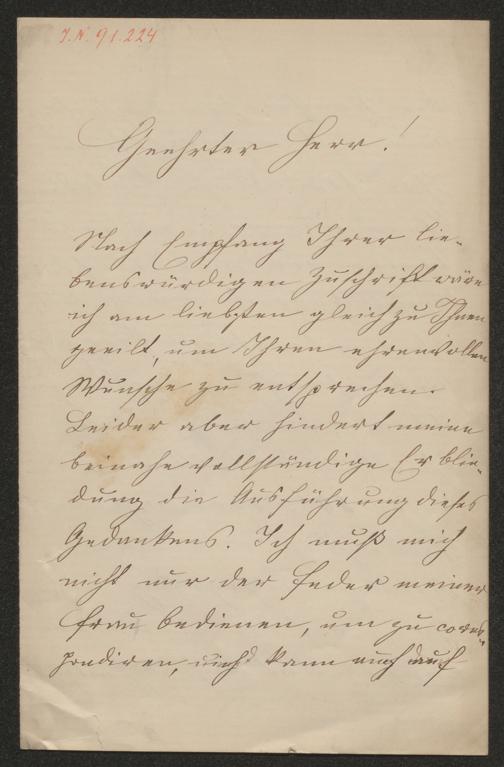 J.N. 91.224
Geehrter Herr!
Nach Empfang Ihrer lie-
benswürdigen Zuschrift wäre
ich am liebsten gleich zu Ihnen
geeilt, um Ihren ehrenvollen
Wunsche zu entsprechen.
Leider aber hindert meine
beinahe vollständige Erblin-
dung die Ausführung dieses
Gedankens. Ich muß mich
nicht nur der Feder meiner
Frau bedienen, um zu corres-
pondiren, kann auch auf